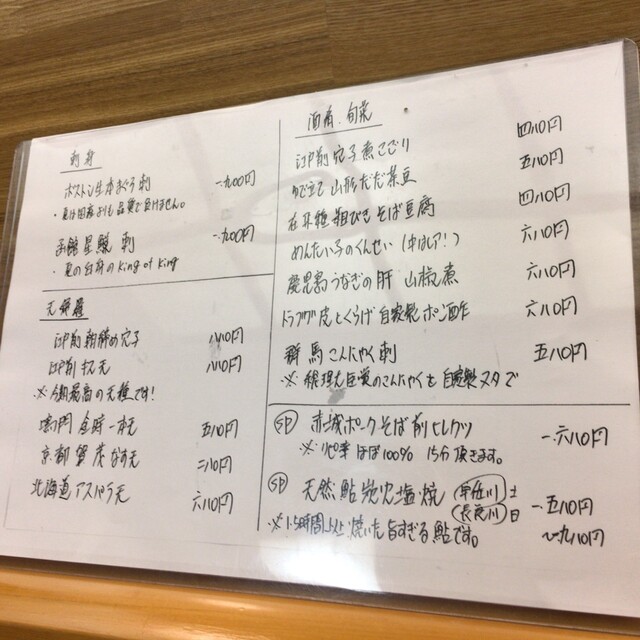 刺身
ボストン生本まぐろ刺 一.九〇〇円
・夏は国産よりも品質で負けません。
函館星鰈刺 一.九〇〇円
・夏の白身のKing of King
天婦羅
江戸前朝締め穴子 八八〇円
江戸前キス天 八八〇円
※今期最高の天種です!
鳴門金時一本天 五八〇円
京都賀茂なす天 二八〇円
北海道アスパラ天 六八〇円
酒肴.旬菜
江戸前穴子煮こごり 四八〇円
ゆで立て山形だだ茶豆 五八〇円
在来種粗びきそば豆腐 四八〇円
めんたい子のくんせい(中はレア!) 六八〇円
鹿児島うなぎの肝山椒煮 六八〇円
トラフグ皮とくらげ自家製ポン酢作 六八〇円
群馬こんにゃく刺 五八〇円
※総理大臣賞のこんにゃくを自家製ヌタで
SP 赤城ポークそば前ヒレカツ 一.六八〇円
※リピ率ほぼ100% 15分頂きます。
SP 天然鮎炭火塩焼 土
日 一.五八〇円
※1.5時間以上焼いた旨すぎる鮎です。 〜一.九八〇円